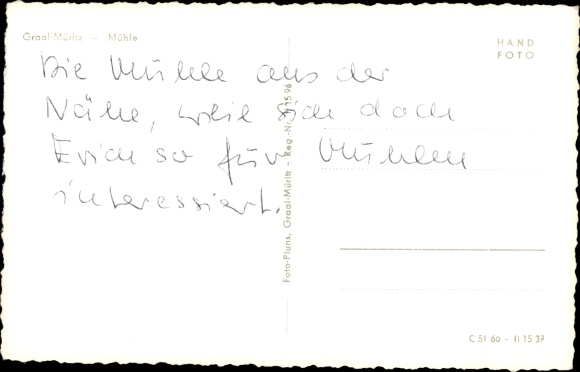 Graal-Müritz - Mühle
HAND
FOTO
Die Mühle aus der
Nähe, weil sich doch
Erich so für Mühlen
interessiert.
Foto-Pluns, Graal-Müritz - Reg.-Nr. 1 15 96
C 51 60 - II 15 37